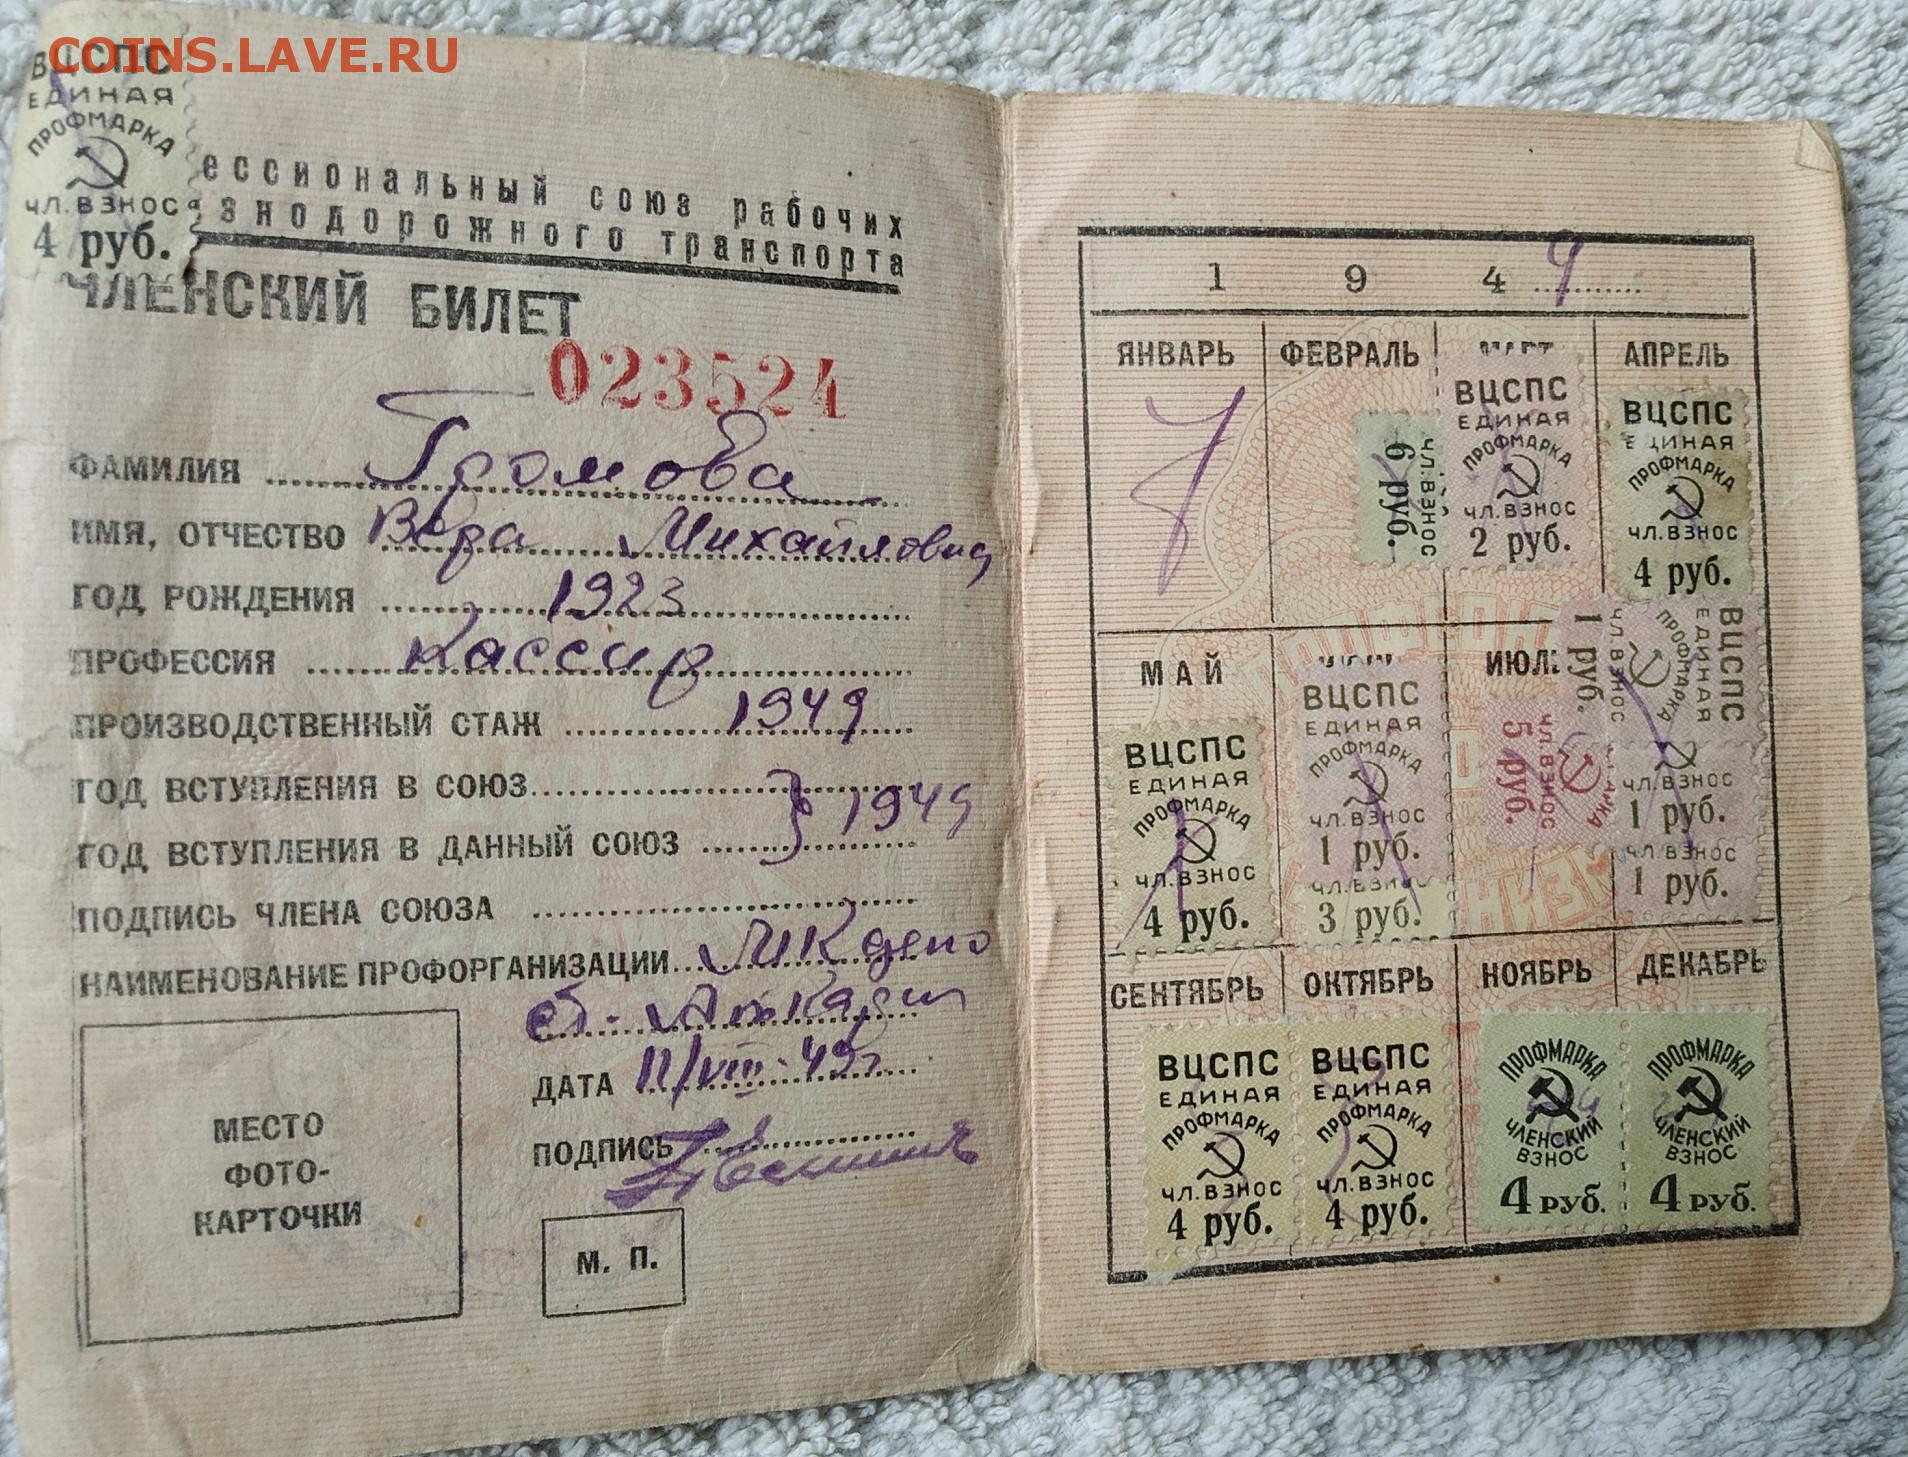 COINS.LAVE.RU
ВЦСПС
ЕДИНАЯ
ПРОФМАРКА
ЧЛ. ВЗНОС
4 руб.
ессиональный союз рабочих
знодорожного транспорта
ЧЛЕНСКИЙ БИЛЕТ
023524
ФАМИЛИЯ Громова
ИМЯ, ОТЧЕСТВО Вера Михайловна
ГОД РОЖДЕНИЯ 1923
ПРОФЕССИЯ Кассир
ПРОИЗВОДСТВЕННЫЙ СТАЖ 1949
ГОД ВСТУПЛЕНИЯ В СОЮЗ
ГОД ВСТУПЛЕНИЯ В ДАННЫЙ СОЮЗ } 1949
ПОДПИСЬ ЧЛЕНА СОЮЗА
НАИМЕНОВАНИЕ ПРОФОРГАНИЗАЦИИ МК депо
ст.
ДАТА 11/VIII-49г
ПОДПИСЬ
МЕСТО
ФОТО-
КАРТОЧКИ
М. П.
1 9 4 9
ЯНВАРЬ ФЕВРАЛЬ МАРТ АПРЕЛЬ
ЧЛ. ВЗНОС
6 руб.
ВЦСПС
ЕДИНАЯ
ПРОФМАРКА
ЧЛ. ВЗНОС
2 руб.
ВЦСПС
ЕДИНАЯ
ПРОФМАРКА
ЧЛ. ВЗНОС
4 руб.
МАЙ ИЮЛЬ
ВЦСПС
ЕДИНАЯ
ПРОФМАРКА
ЧЛ. ВЗНОС
4 руб.
ВЦСПС
ЕДИНАЯ
ПРОФМАРКА
ЧЛ. ВЗНОС
1 руб.
ЧЛ. ВЗНОС
3 руб.
ЧЛ. ВЗНОС
5 руб.
ВЦСПС
ЕДИНАЯ
ПРОФМАРКА
ЧЛ. ВЗНОС
1 руб.
ЧЛ. ВЗНОС
1 руб.
ЧЛ. ВЗНОС
1 руб.
СЕНТЯБРЬ ОКТЯБРЬ НОЯБРЬ ДЕКАБРЬ
ВЦСПС
ЕДИНАЯ
ПРОФМАРКА
ЧЛ. ВЗНОС
4 руб.
ВЦСПС
ЕДИНАЯ
ПРОФМАРКА
ЧЛ. ВЗНОС
4 руб.
ПРОФМАРКА
ЧЛЕНСКИЙ
ВЗНОС
4 РУБ.
ПРОФМАРКА
ЧЛЕНСКИЙ
ВЗНОС
4 РУБ.